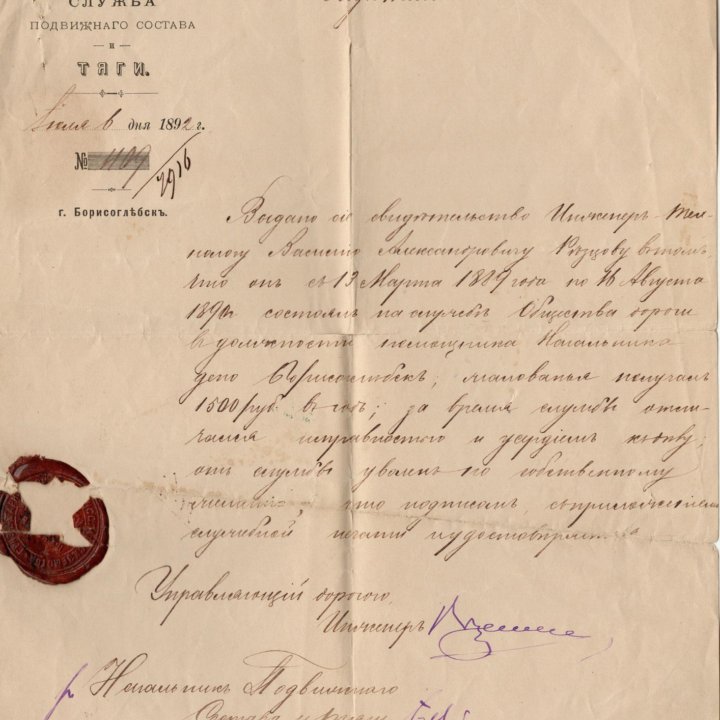 СЛУЖБА
ПОДВИЖНАГО СОСТАВА
и
ТЯГИ.
Іюля 6 дня 1892 г.
№ 1109
2916
г. Борисоглѣбскъ.
Выдано сіе свидѣтельство Инженеръ-Тех-
нологу Василію Александровичу въ томъ,
что онъ съ 13 Марта 1889 года по 16 Августа
состоялъ на службѣ Общества дороги
въ должности помощника Начальника
депо Борисоглѣбскъ; жалованья получалъ
1500 руб. въ годъ; за время службы отли-
чался исправностью и усердіемъ къ дѣлу;
отъ службы уволенъ по собственному
желанію, что подписомъ, съ приложеніемъ
служебной печати удостовѣряется
Управляющій дорогою,
Инженеръ
Начальникъ Подвижного
Состава и Тяги